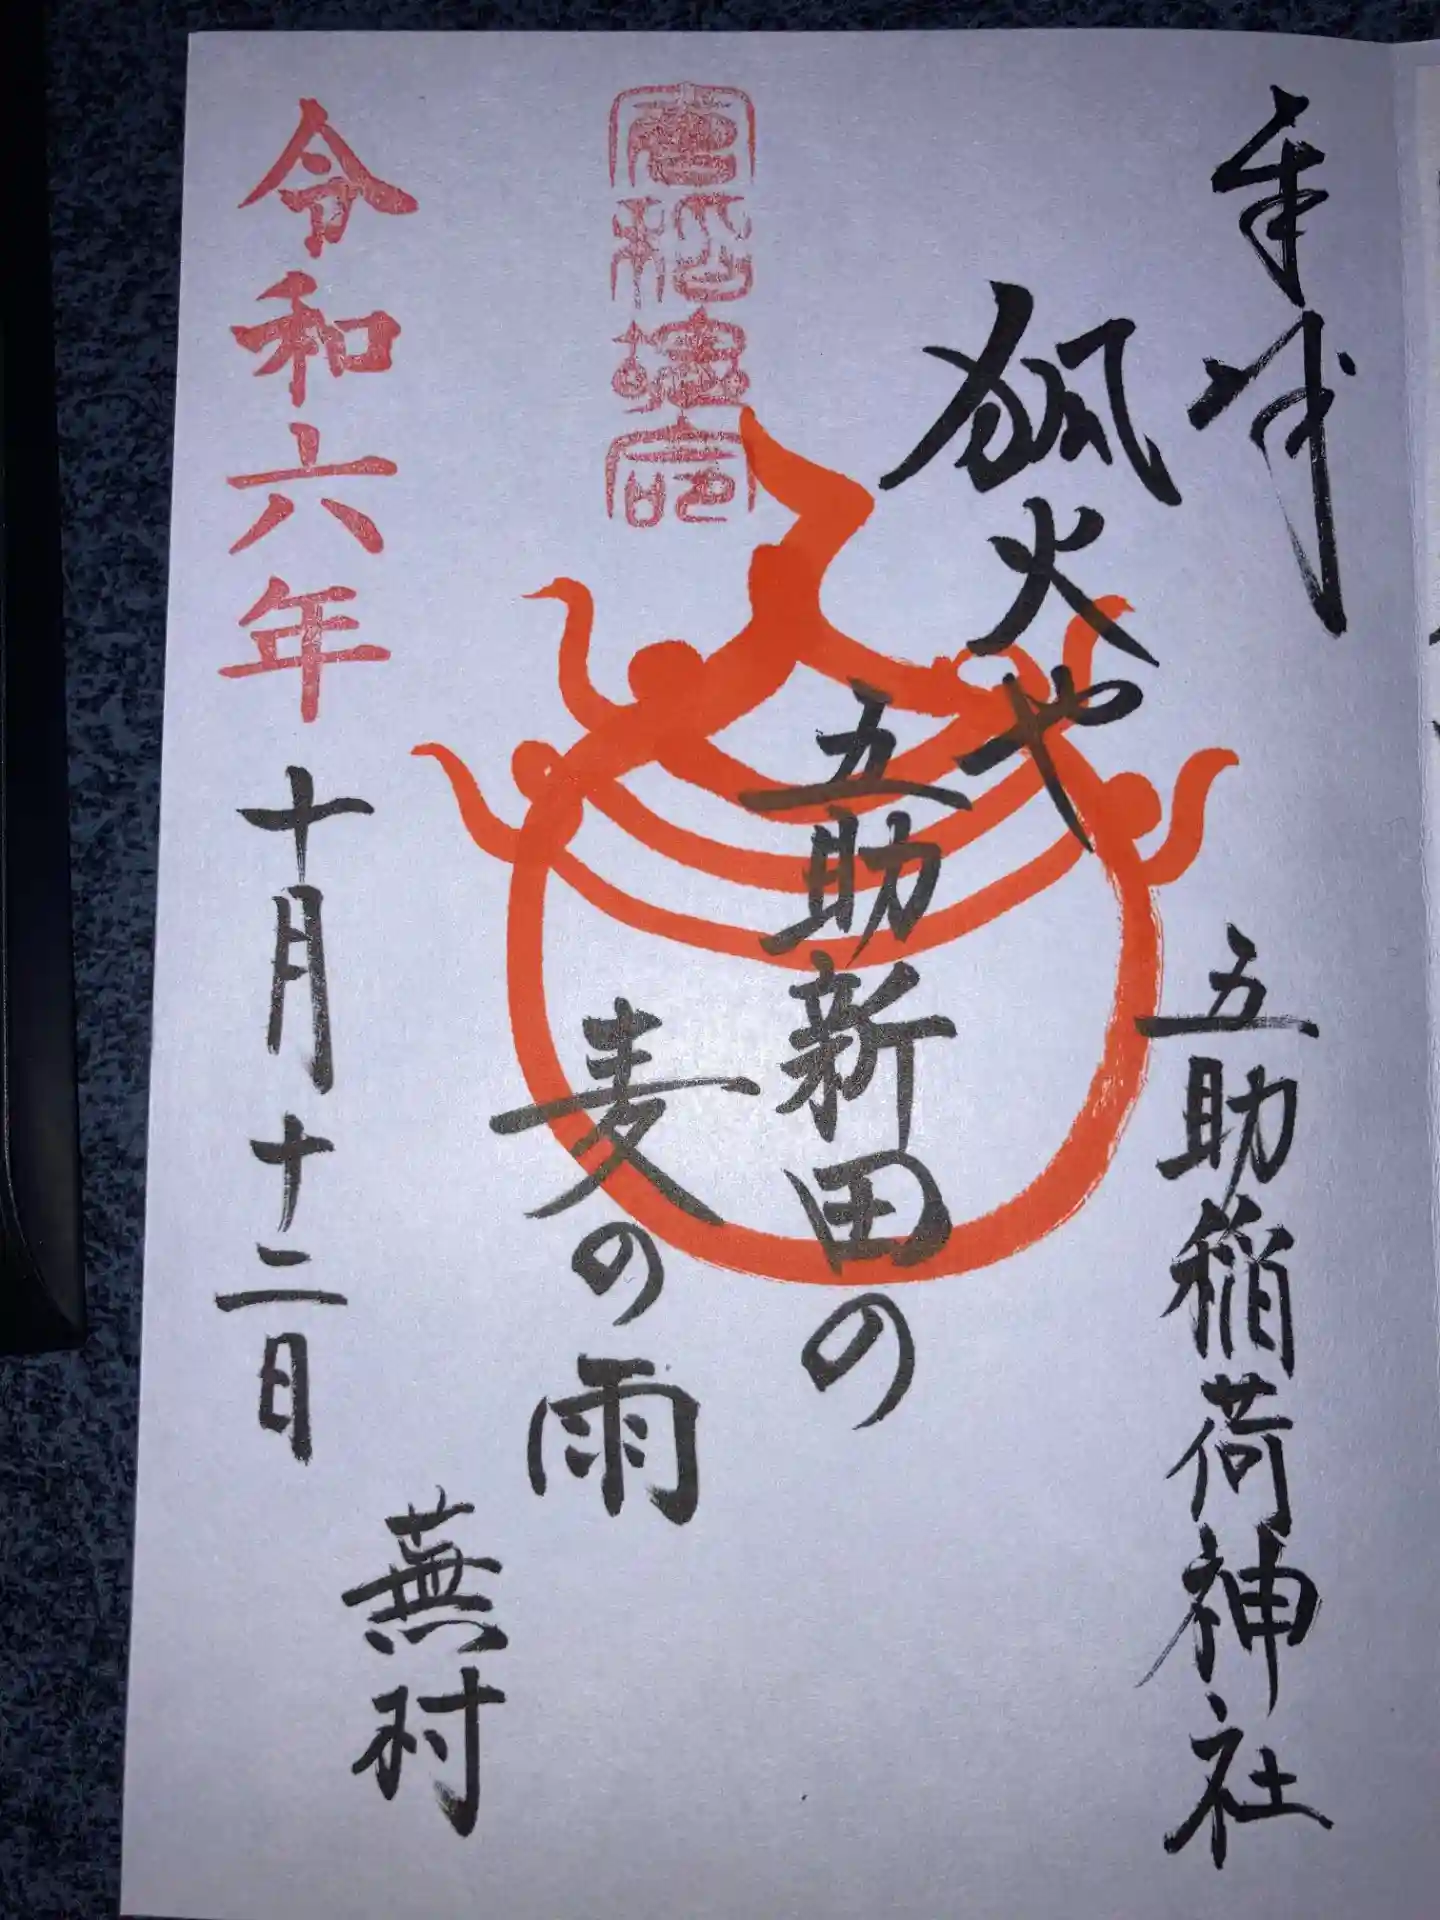 奉拝
五助稲荷神社
狐火や
五助新田の
麦の雨
蕪村
令和六年十月十二日